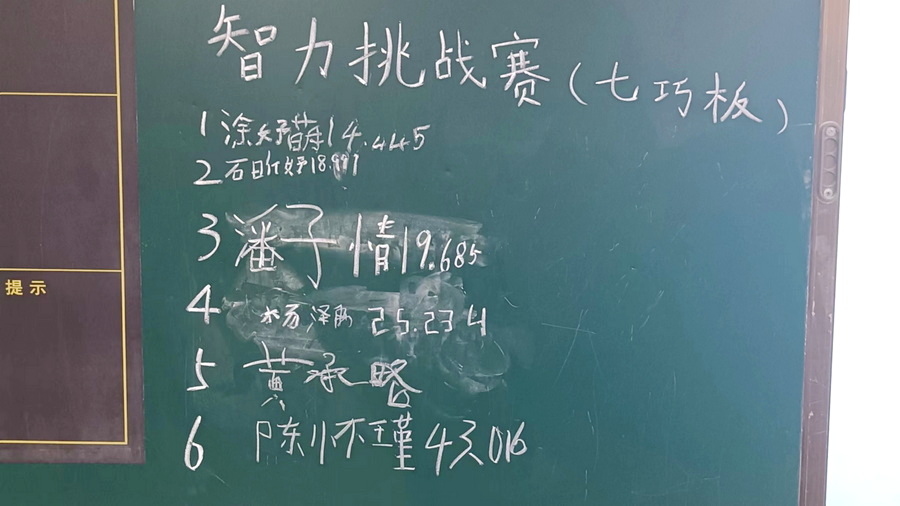 智力挑战赛(七巧板)
1 涂妤萌 14.445
2 石日 18.997
3 潘子情 19.685
4 杨泽 25.234
提示
5 黄承略
6 陈怀瑾 43.016